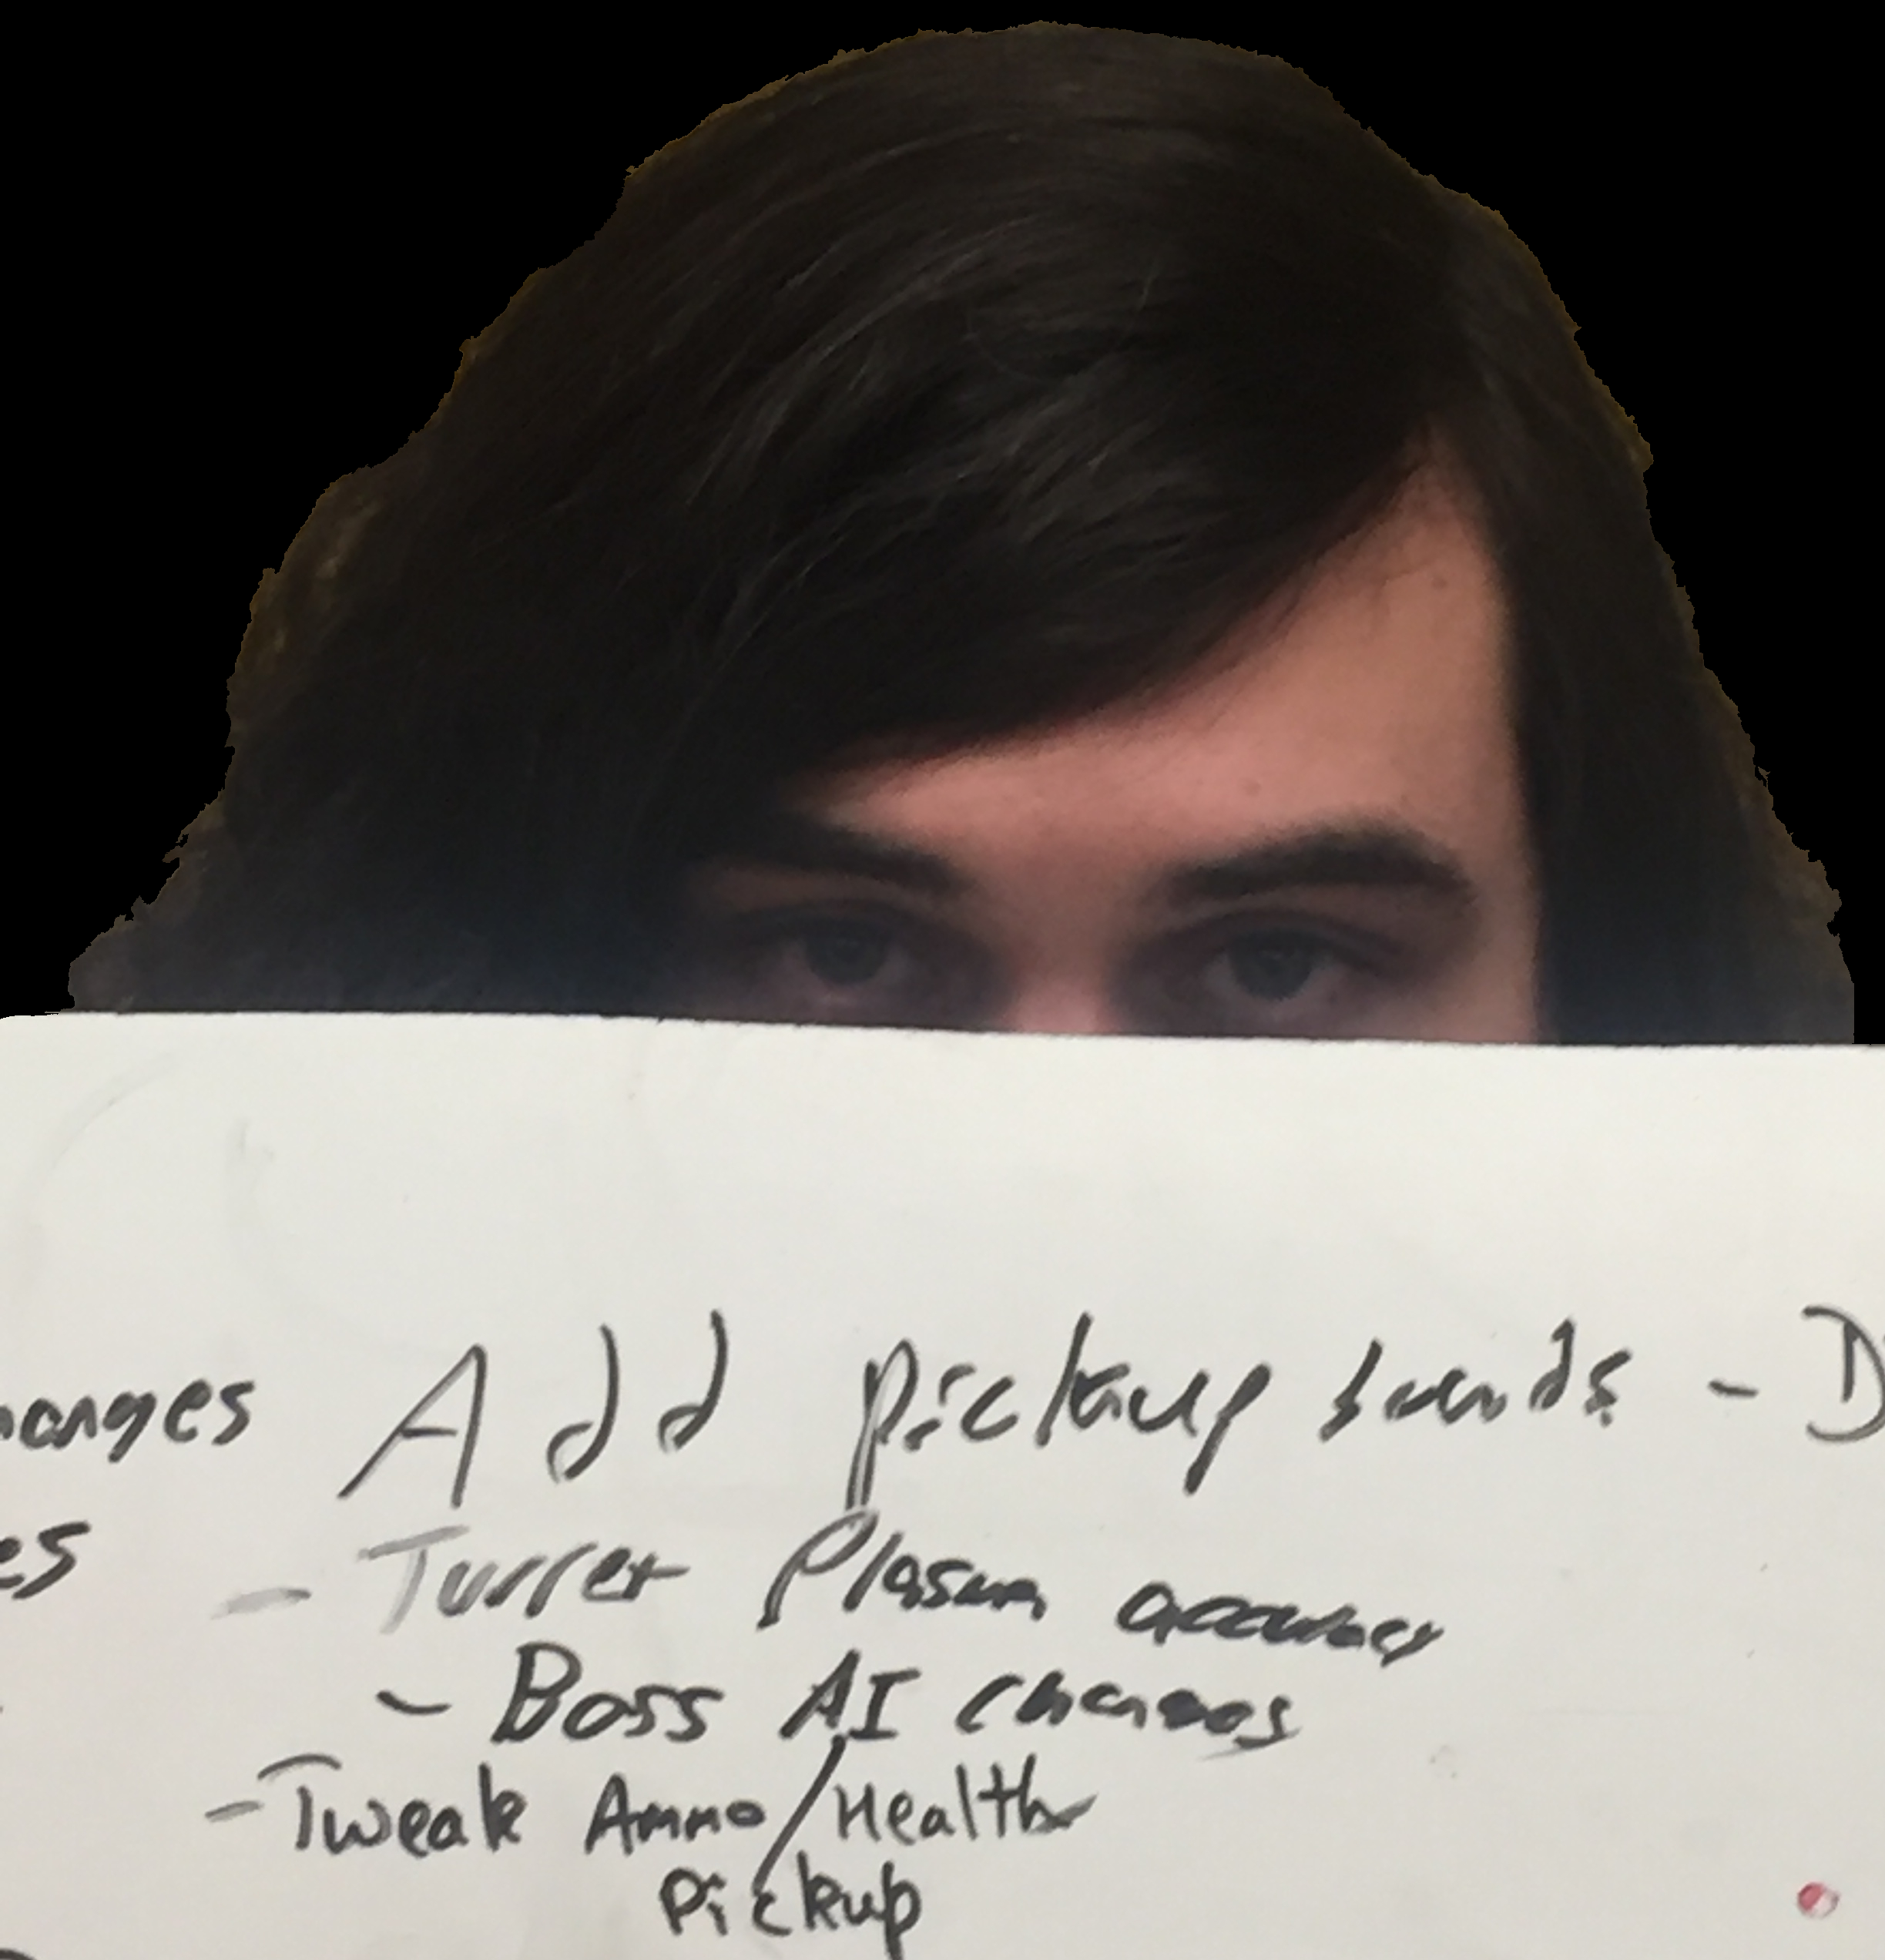 hanges Add pickup sounds - D
es - Turret Plasma accuracy
- Boss AI changes
- Tweak Ammo/Health
Pickup